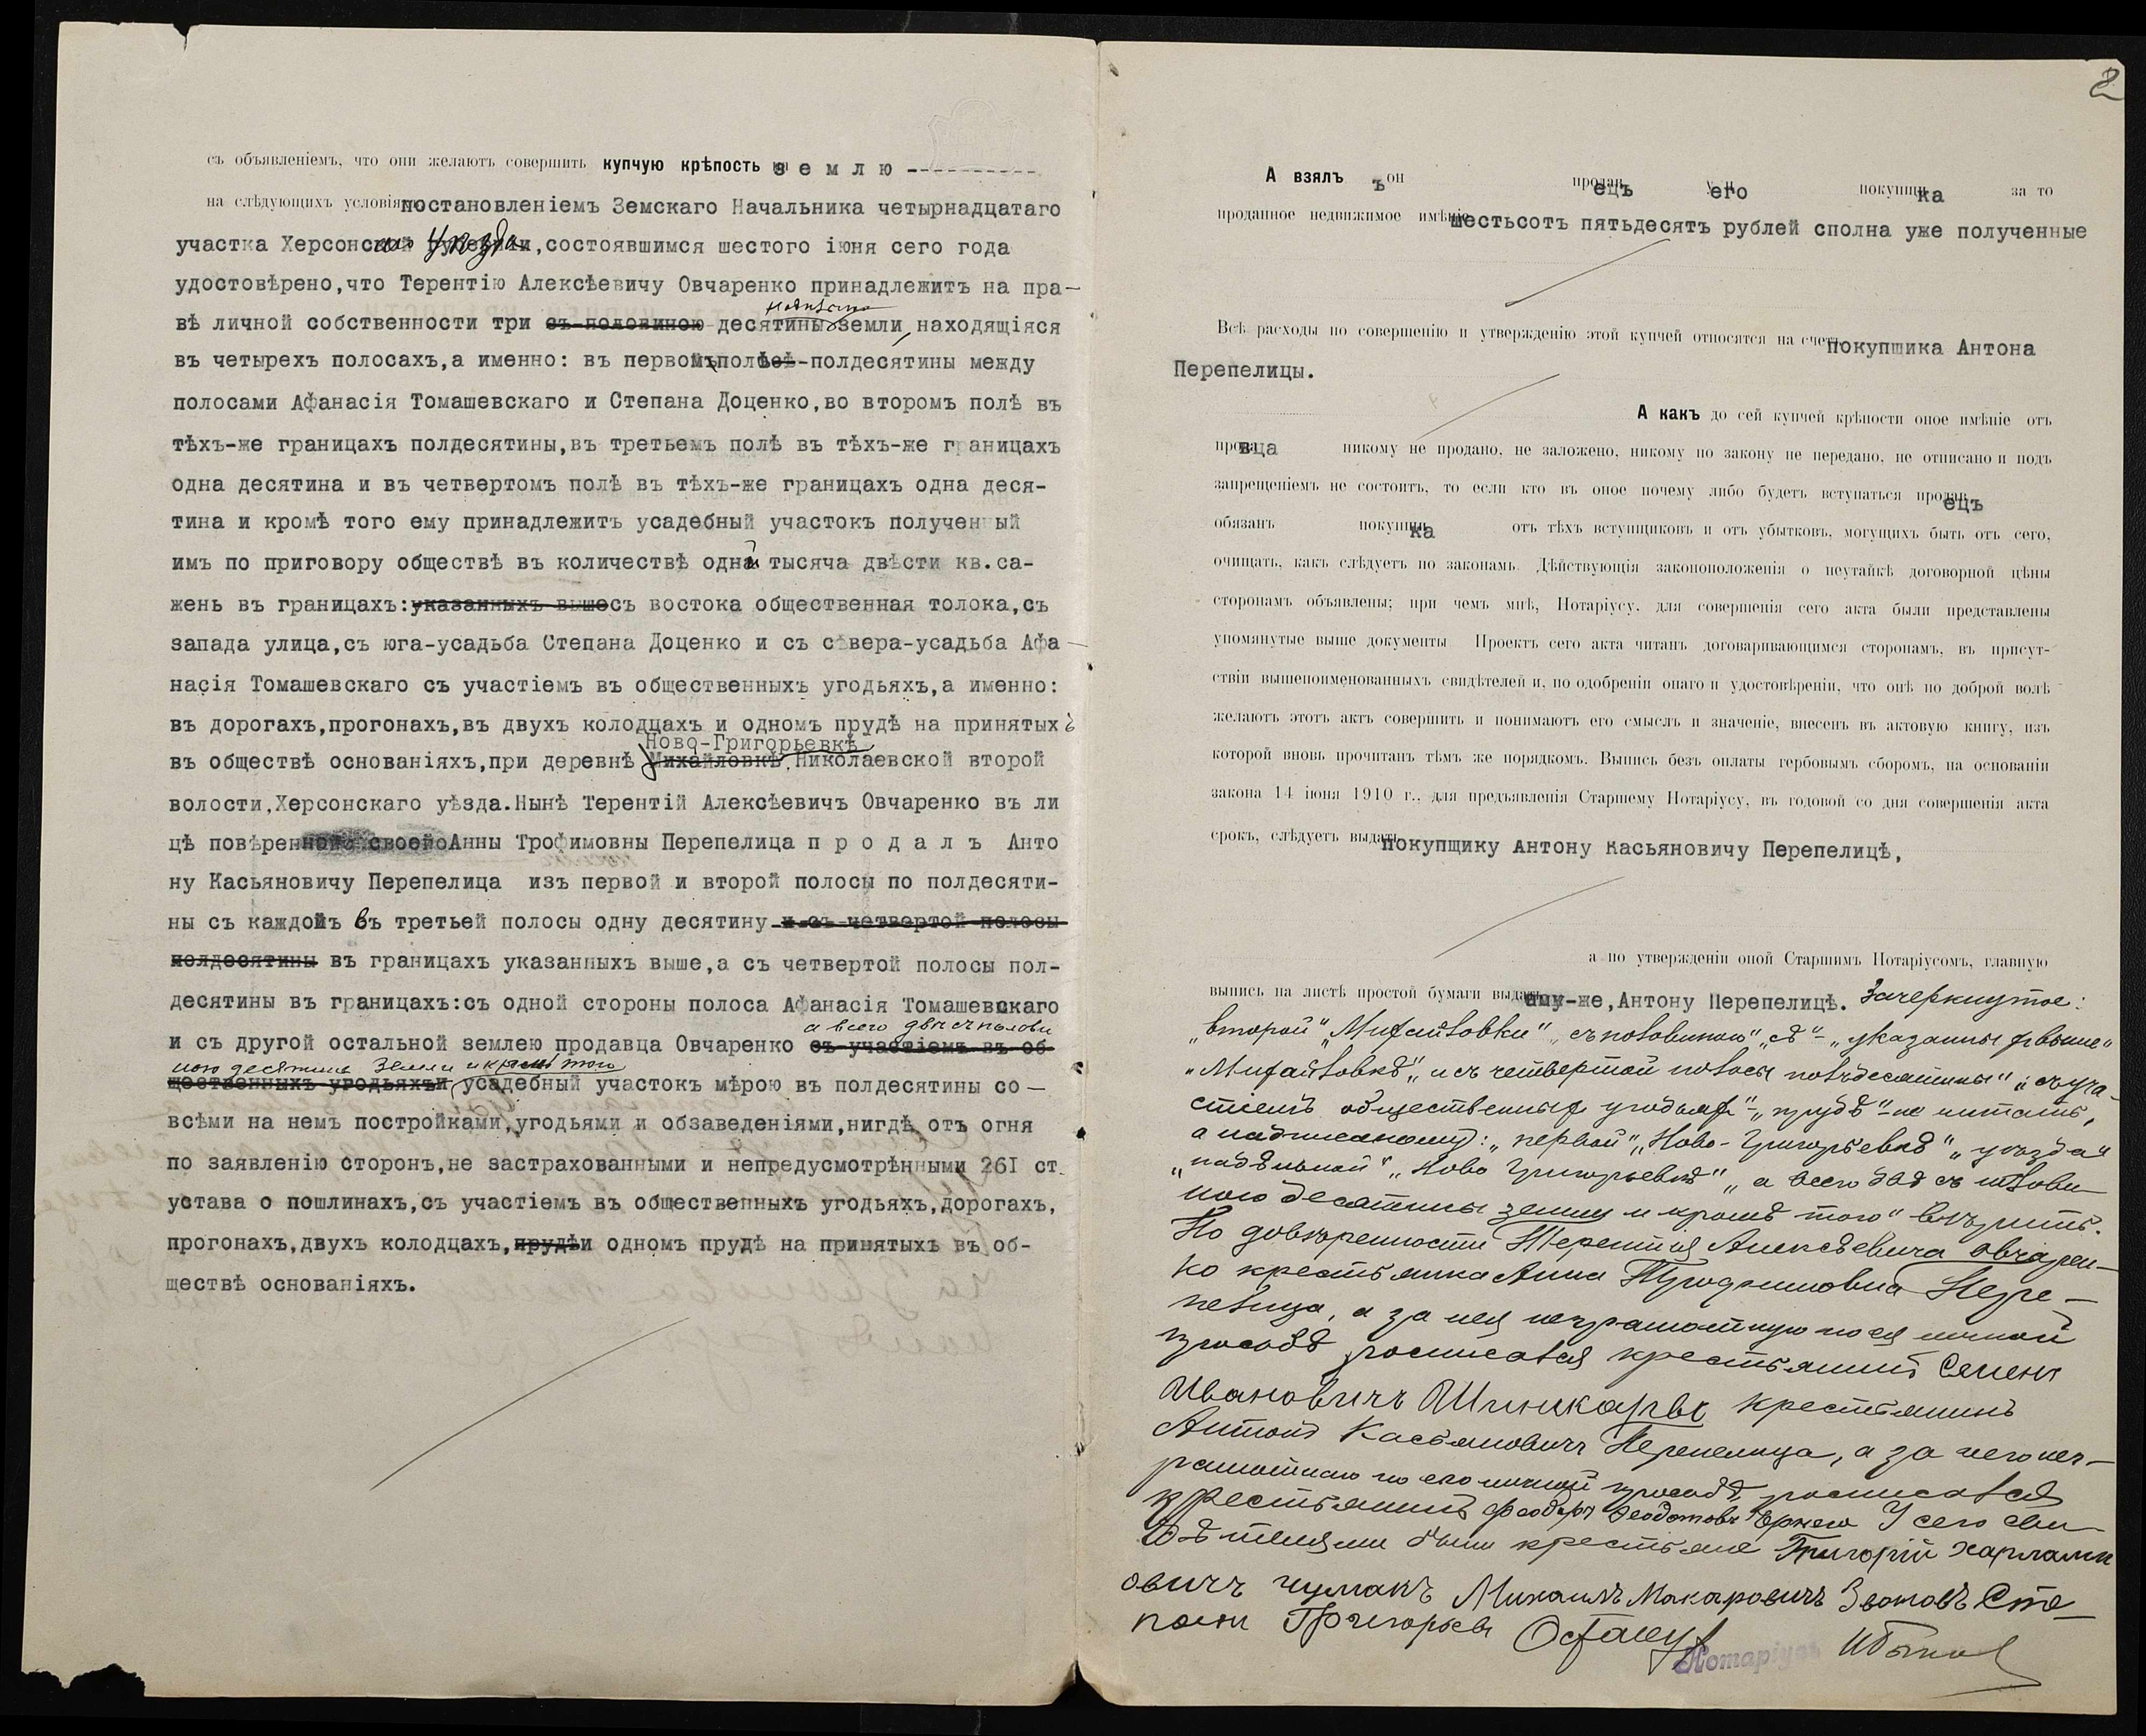 съ объявленіемъ, что они желаютъ совершить купчую крѣпость на землю -----------
на слѣдующихъ условіяхъ: постановленіемъ Земскаго Начальника четырнадцатаго
участка Херсонскаго уѣзда, состоявшимся шестого іюня сего года
удостовѣрено,что Терентію Алексѣевичу Овчаренко принадлежитъ на пра-
надѣльной
вѣ личной собственности три съ половиною десятины земли, находящіяся
въ четырехъ полосахъ,а именно: въ первомъ полѣ сѣ-полдесятины между
полосами Афанасія Томашевскаго и Степана Доценко,во второмъ полѣ въ
тѣхъ-же границахъ полдесятины,въ третьемъ полѣ въ тѣхъ-же границахъ
одна десятина и въ четвертомъ полѣ въ тѣхъ-же границахъ одна деся-
тина и кромѣ того ему принадлежитъ усадебный участокъ полученный
имъ по приговору обществѣ въ количествѣ одна тысяча двѣсти кв.са-
жень въ границахъ:указанныхъ вышесъ востока общественная толока,съ
запада улица,съ юга-усадьба Степана Доценко и съ сѣвера-усадьба Афа-
насія Томашевскаго съ участіемъ въ общественныхъ угодьяхъ,а именно:
въ дорогахъ,прогонахъ,въ двухъ колодцахъ и одномъ прудѣ на принятыхъ
Ново-Григорьевкѣ
въ обществѣ основаніяхъ,при деревнѣ Михайловкѣ,Николаевской второй
волости,Херсонскаго уѣзда.Нынѣ Терентій Алексѣевичъ Овчаренко въ ли
цѣ повѣренной своей Анны Трофимовны Перепелица п р о д а л ъ Анто
ну Касьяновичу Перепелица изъ первой и второй полосы по полдесяти-
ны съ каждой въ третьей полосы одну десятину и съ четвертой полосы
полдесятины въ границахъ указанныхъ выше,а съ четвертой полосы пол-
десятины въ границахъ:съ одной стороны полоса Афанасія Томашевскаго
а всего двѣ съ полови
и съ другой остальной землею продавца Овчаренко съ участіемъ въ об
ною десятины земли и кромѣ того
щественныхъ угодьяхъи усадебный участокъ мѣрою въ полдесятины со-
всѣми на немъ постройками,угодьями и обзаведеніями,нигдѣ отъ огня
по заявленію сторонъ,не застрахованными и непредусмотрѣнными 261 ст.
устава о пошлинахъ,съ участіемъ въ общественныхъ угодьяхъ,дорогахъ,
прогонахъ,двухъ колодцахъ,прудѣи одномъ прудѣ на принятыхъ въ об-
ществѣ основаніяхъ.
2
А взялъ онъ продавецъ у него покупщика за то
проданное недвижимое имѣніе шестьсотъ пятьдесятъ рублей сполна уже полученные
Всѣ расходы по совершенію и утвержденію этой купчей относятся на счетъ покупщика Антона
Перепелицы.
А какъ до сей купчей крѣпости оное имѣніе отъ
продавца никому не продано, не заложено, никому по закону не передано, не отписано и подъ
запрещеніемъ не состоитъ, то если кто въ оное почему либо будетъ вступаться продавецъ
обязанъ покупщика отъ тѣхъ вступщиковъ и отъ убытковъ, могущихъ быть отъ сего,
очищать, какъ слѣдуетъ по законамъ. Дѣйствующія законоположенія о неутайкѣ договорной цѣны
сторонамъ объявлены; при чемъ мнѣ, Нотаріусу, для совершенія сего акта были представлены
упомянутые выше документы Проектъ сего акта читанъ договаривающимся сторонамъ, въ присут-
ствіи вышепоименованныхъ свидѣтелей и, по одобреніи онаго и удостовѣреніи, что онѣ по доброй волѣ
желаютъ этотъ актъ совершить и понимаютъ его смыслъ и значеніе, внесенъ въ актовую книгу, изъ
которой вновь прочитанъ тѣмъ же порядкомъ. Выпись безъ оплаты гербовымъ сборомъ, на основаніи
закона 14 іюня 1910 г., для предъявленія Старшему Нотаріусу, въ годовой со дня совершенія акта
срокъ, слѣдуетъ выдать покупщику Антону Касьяновичу Перепелицѣ,
а по утвержденіи оной Старшимъ Нотаріусомъ, главную
выпись на листѣ простой бумаги выдать ему-же,Антону Перепелицѣ. Зачеркнутое:
„второй" „Михайловки" „съ половиною" „сѣ"- „указанныхъ выше"
„Михайловкѣ" „и съ четвертой полосы полдесятины" „съ уча-
стіемъ общественныхъ угодьяхъ"- „прудѣ"-не читать,
а надписанному: „первой" „Ново-Григорьевкѣ" „уѣзда"
„надѣльной" „Ново Григорьевкѣ" „а всего двѣ съ полови-
ною десятины земли и кромѣ того" вѣрить.
По довѣренности Терентія Алексѣевича Овчарен-
ко крестьянка Анна Трофимовна Пере-
пелица, а за нея неграмотную по ея личной
просьбѣ росписался крестьянинъ Семенъ
Ивановичъ Шинкаревъ крестьянинъ
Антонъ Касьяновичъ Перепелица, а за него нег-
рамотнаго по его личной просьбѣ росписался
крестьянинъ Феодоръ Феодотовъ У сего сви-
дѣтелями были крестьяне Григорій Харламп
овичъ Чумакъ Михаилъ Макаровичъ Звоновъ Сте-
панъ Григорьевъ
Нотаріусъ